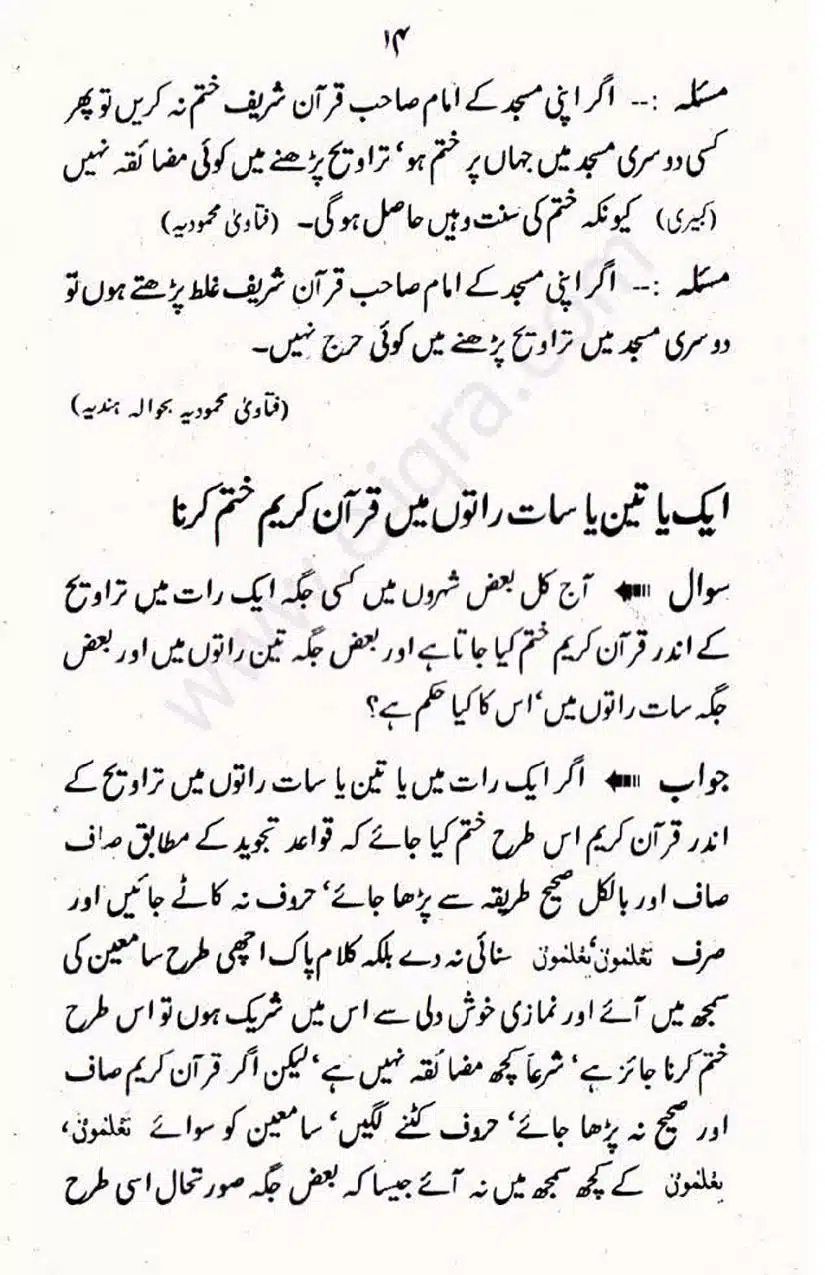 ۱۴
مسئلہ :-- اگر اپنی مسجد کے امام صاحب قرآن شریف ختم نہ کریں تو پھر
کسی دوسری مسجد میں جہاں پر ختم ہو‘ تراویح پڑھنے میں کوئی مضائقہ نہیں
(کبیری) کیونکہ ختم کی سنت وہیں حاصل ہوگی۔ (فتاویٰ محمودیہ)
مسئلہ :-- اگر اپنی مسجد کے امام صاحب قرآن شریف غلط پڑھتے ہوں تو
دوسری مسجد میں تراویح پڑھنے میں کوئی حرج نہیں۔
(فتاویٰ محمودیہ بحوالہ ہندیہ)
ایک یا تین یا سات راتوں میں قرآن کریم ختم کرنا
سوال آج کل بعض شہروں میں کسی جگہ ایک رات میں تراویح
کے اندر قرآن کریم ختم کیا جاتا ہے اور بعض جگہ تین راتوں میں اور بعض
جگہ سات راتوں میں‘ اس کا کیا حکم ہے؟
جواب اگر ایک رات میں یا تین یا سات راتوں میں تراویح کے
اندر قرآن کریم اس طرح ختم کیا جائے کہ قواعد تجوید کے مطابق صاف
صاف اور بالکل صحیح طریقہ سے پڑھا جائے‘ حروف نہ کاٹے جائیں اور
صرف تعلمون‘ یعلمون سنائی نہ دے بلکہ کلام پاک اچھی طرح سامعین کی
سمجھ میں آئے اور نمازی خوش دلی سے اس میں شریک ہوں تو اس طرح
ختم کرنا جائز ہے‘ شرعاً کچھ مضائقہ نہیں ہے‘ لیکن اگر قرآن کریم صاف
اور صحیح نہ پڑھا جائے‘ حروف کٹنے لگیں‘ سامعین کو سوائے تعلمون،
یعلمون کے کچھ سمجھ میں نہ آئے جیسا کہ بعض جگہ صورتحال اسی طرح
www.e-iqra.com